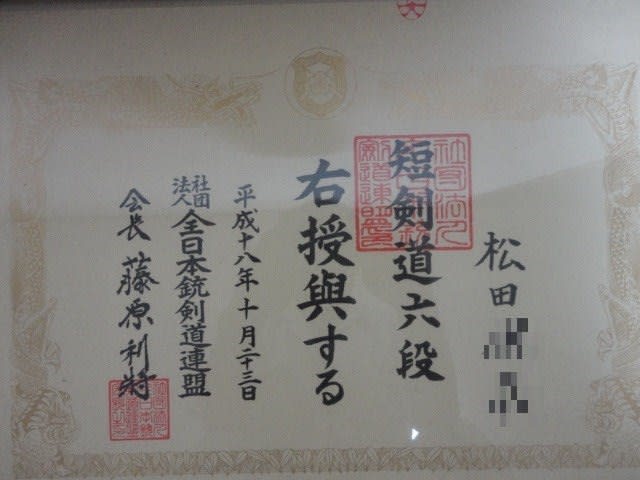 松田
短剣道六段
右授與する
平成十八年十月二十三日
社団法人全日本銃剣道連盟
会長 藤原利將